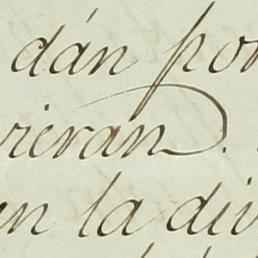 dán por
rieran.
en la div